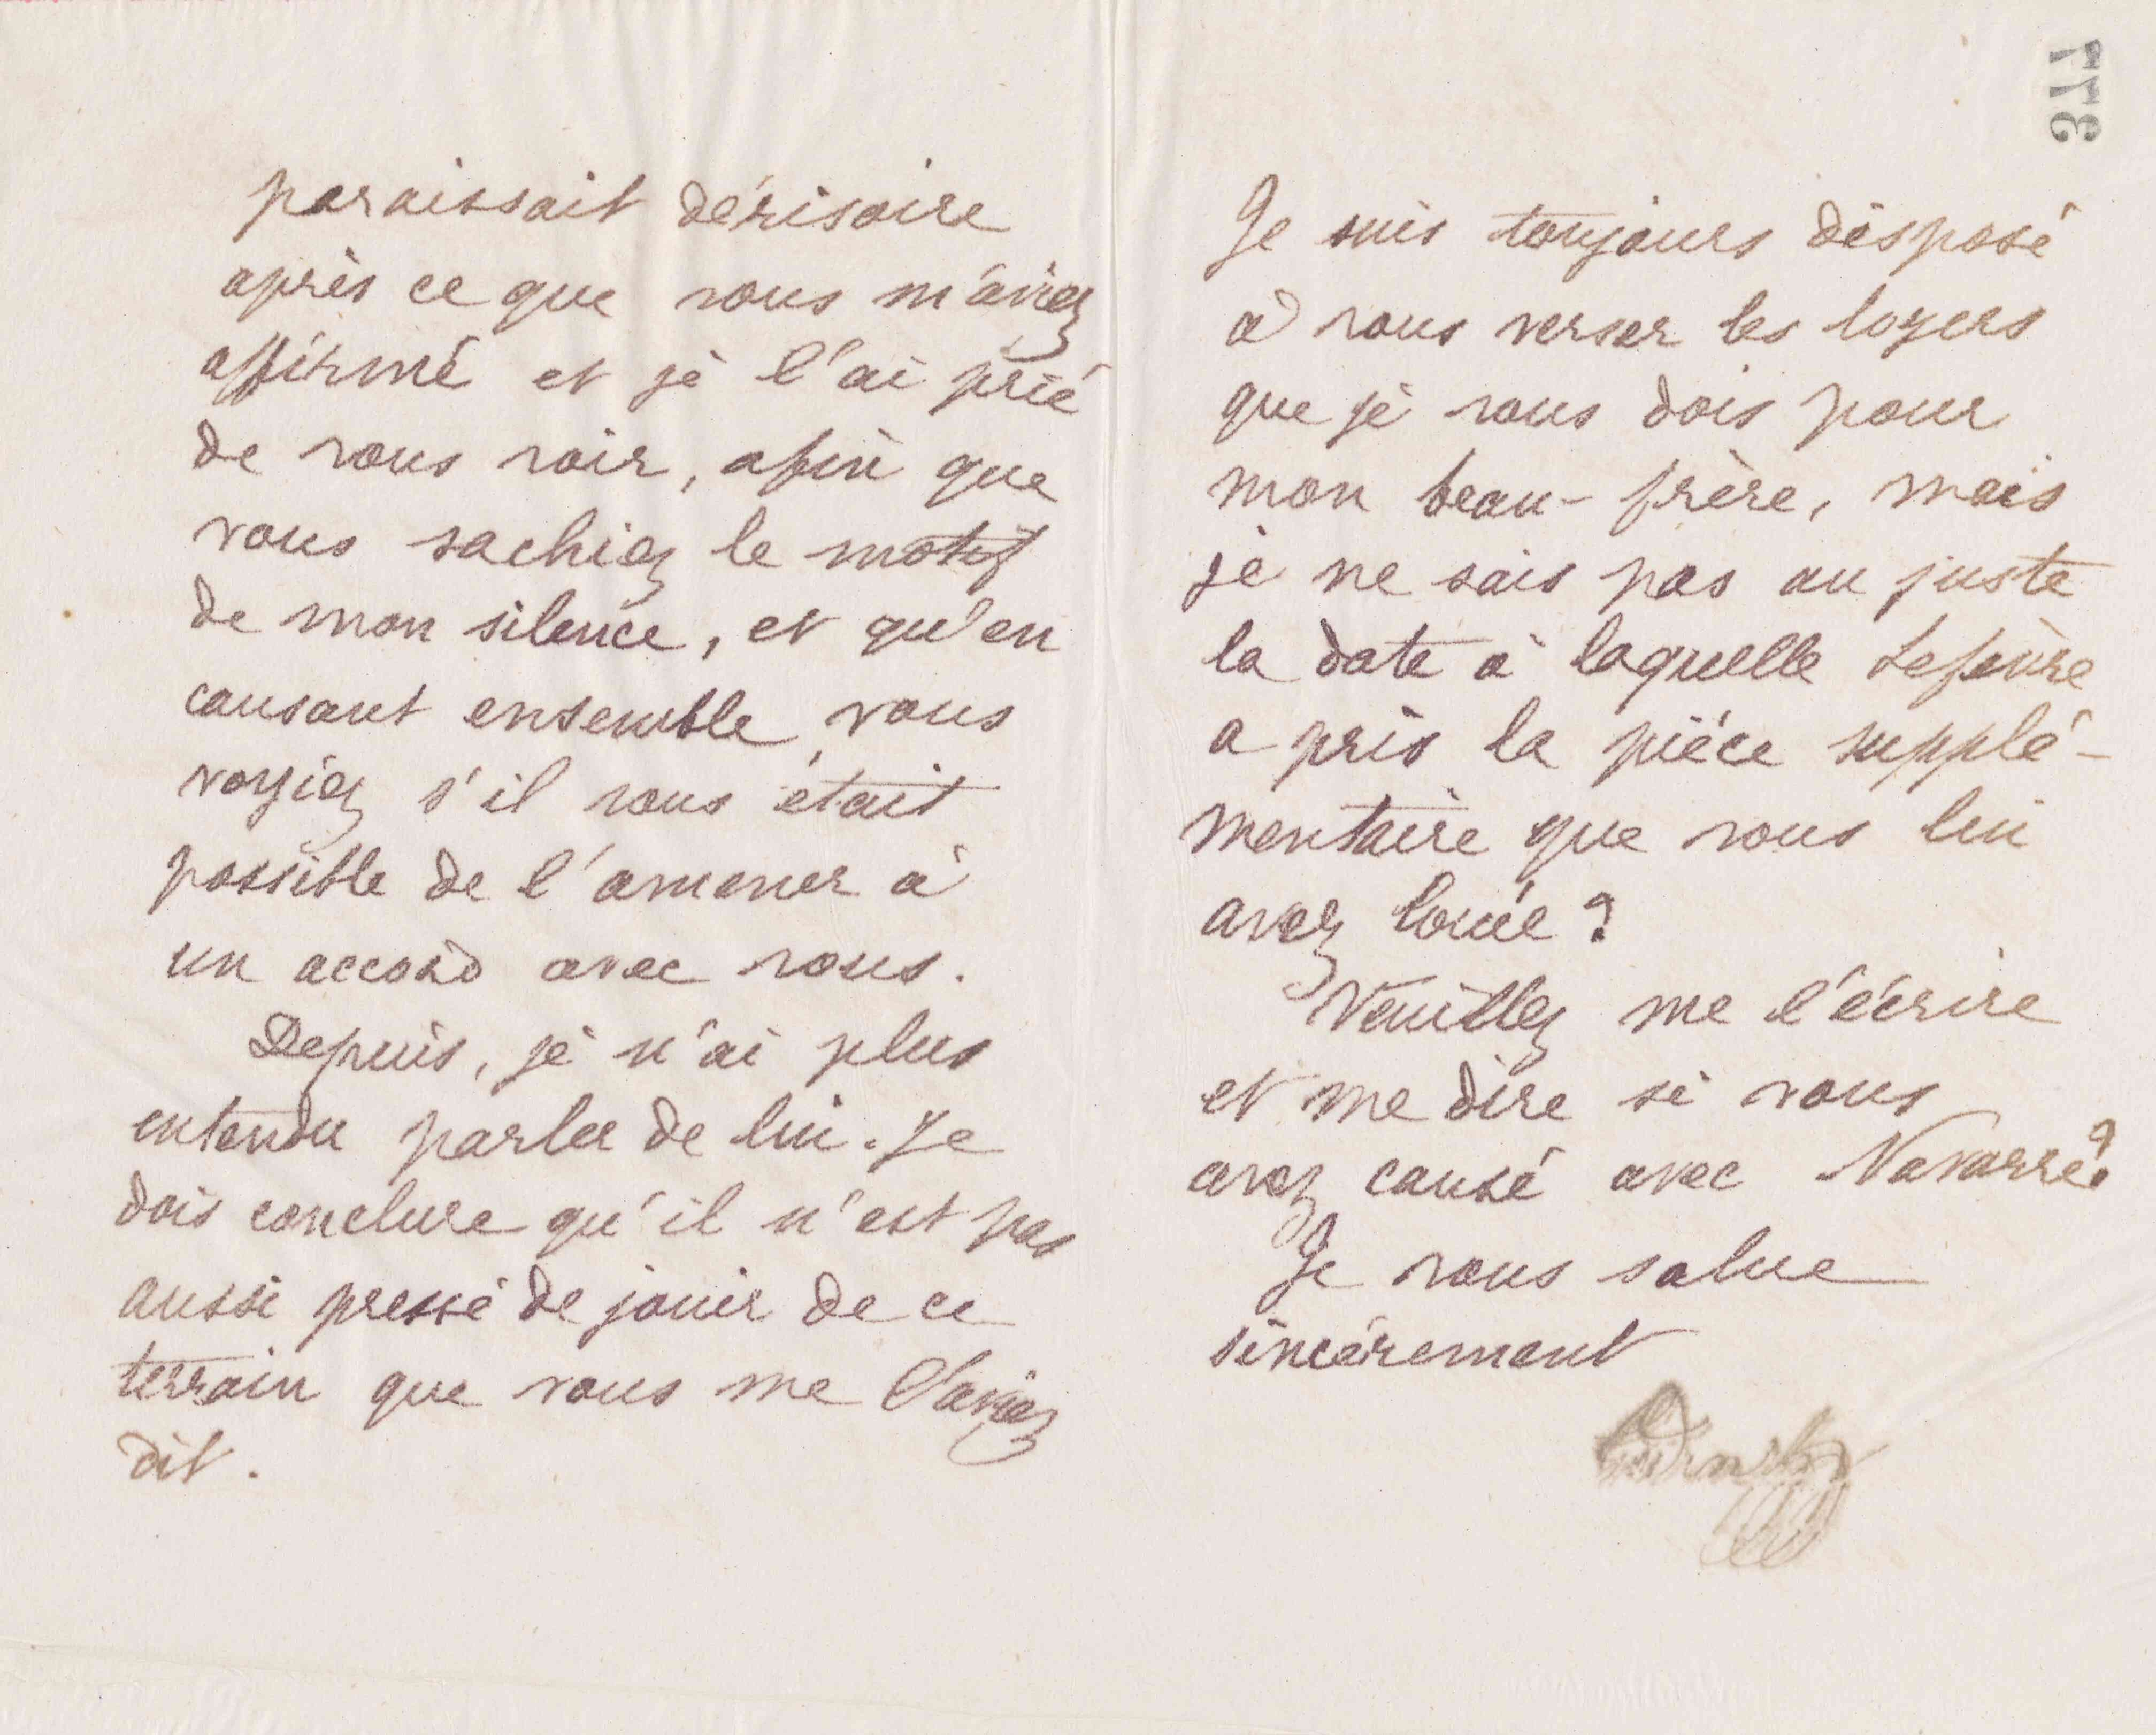 paraissait dérisoire
après ce que vous m'aviez
affirmé et je l'ai prié
de vous voir, afin que
vous sachiez le motif
de mon silence, et qu'en
causant ensemble, vous
voyiez s'il vous était
possible de l'amener à
un accord avec vous.
Depuis, je n'ai plus
entendu parler de lui. Je
dois conclure qu'il n'est pas
aussi pressé de jouir de ce
terrain que vous me l'aviez
dit.
377
Je suis toujours disposé
à vous verser les loyers
que je vous dois pour
mon beau-frère, mais
je ne sais pas au juste
la date à laquelle Lefèvre
a pris la pièce supplé-
mentaire que vous lui
avez louée ?
Veuillez me l'écrire
et me dire si vous
avez causé avec Navarre ?
Je vous salue
sincèrement